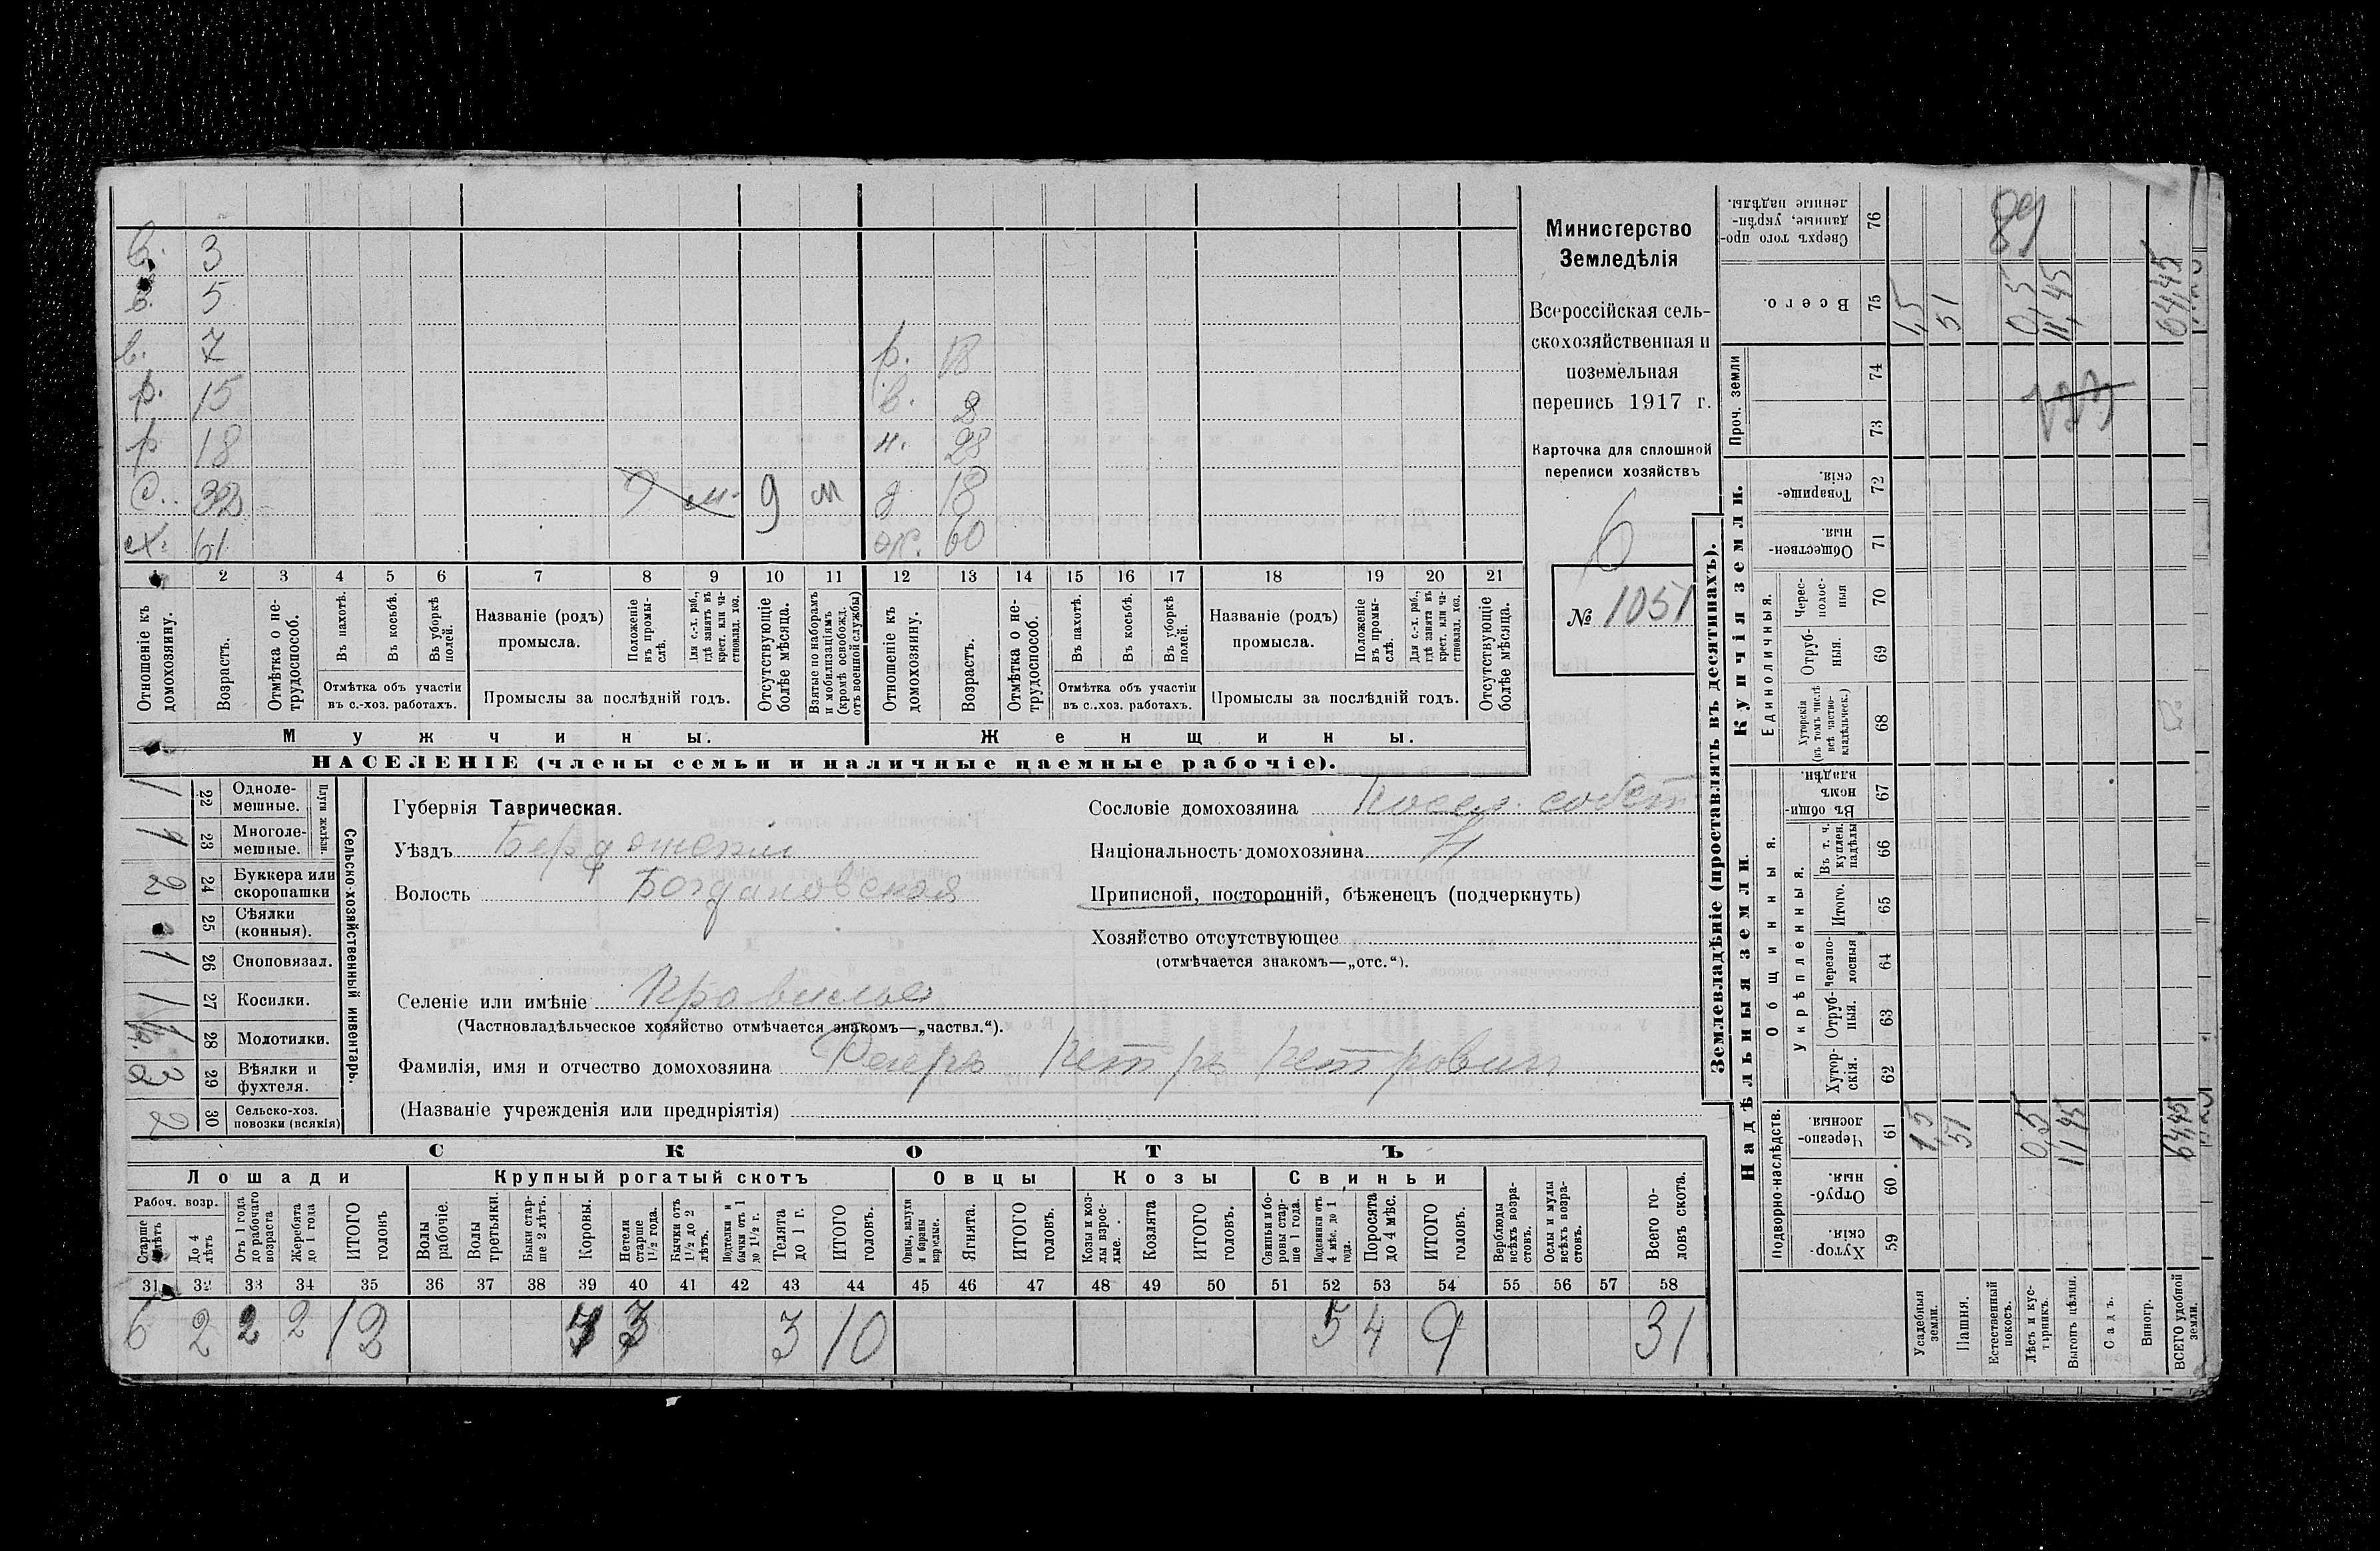 в. 3
в. 5
в. 7 р. 18
р. 15 в. 2
р 18 н. 28
с. 32 9 м. 9 м д 18
ех. 61 ж. 60
1 2 3 4 5 6 7 8 9 10 11 12 13 14 15 16 17 18 19 20 21
Отношеніе къ домохозяину.
Возрастъ.
Отмѣтка о не-трудоспособ.
Въ пахотѣ.
Въ косьбѣ.
Въ уборкѣ полей.
Отмѣтка объ участіи
въ с.-хоз. работахъ.
Названіе (родъ)
промысла.
Положеніе въ промы-слѣ.
Для с.-х. раб., гдѣ занятъ въ крест. или ча-стновлад. хоз.
Промыслы за послѣдній годъ.
Отсутствующіе болѣе мѣсяца.
Взятые по наборамъ и мобилизаціямъ (кромѣ освобожд. отъ военной службы)
Отношеніе къ домохозяину.
Возрастъ.
Отмѣтка о не-трудоспособ.
Въ пахотѣ.
Въ косьбѣ.
Въ уборкѣ полей.
Отмѣтка объ участіи
въ с.-хоз. работахъ.
Названіе (родъ)
промысла.
Положеніе въ промы-слѣ.
Для с.-х. раб., гдѣ занята въ крест. или ча-стновлад. хоз.
Промыслы за послѣдній годъ.
Отсутствующіе болѣе мѣсяца.
Мужчины. Женщины.
НАСЕЛЕНІЕ (члены семьи и наличные наемные рабочіе).
Министерство
Земледѣлія
Всероссійская сель-
скохозяйственная и
поземельная
перепись 1917 г.
Карточка для сплошной
переписи хозяйствъ
6
№ 1051
Сельско-хозяйственный инвентарь.
Плуги желѣзн.
1 22 Одноле-мешные.
1 23 Многоле-мешные.
2 24 Буккера или скоропашки
25 Сѣялки (конныя).
1 26 Сноповязал.
1 27 Косилки.
28 Молотилки.
29 Вѣялки и фухтеля.
2 30 Сельско-хоз. повозки (всякія)
Губернія Таврическая.
Уѣздъ Бердянскій
Волость Богдановская
Селеніе или имѣніе
(Частновладѣльческое хозяйство отмѣчается знакомъ—„частвл.“).
Фамилія, имя и отчество домохозяина Петръ Петровичъ
(Названіе учрежденія или предпріятія)
Сословіе домохозяина посел. собств
Національность домохозяина Н
Приписной, посторонній, бѣженецъ (подчеркнуть)
Хозяйство отсутствующее
(отмѣчается знакомъ—„отс.“).
СКОТЪ
Лошади Крупный рогатый скотъ Овцы Козы Свиньи
Рабоч. возр.
Старше 4 лѣтъ
До 4 лѣтъ
Отъ 1 года до рабочаго возраста
Жеребята до 1 года
ИТОГО головъ
Волы рабочіе.
Волы третьяки.
Быки стар-ше 2 лѣтъ.
Коровы.
Нетели старше 1½ года.
Бычки отъ 1½ до 2 лѣтъ.
Подтелки и бычки отъ 1 до 1½ г.
Телята до 1 г.
ИТОГО головъ.
Овцы, валухи и бараны взрослые.
Ягнята.
ИТОГО головъ.
Козы и коз-лы взрос-лые.
Козлята
ИТОГО головъ.
Свиньи и бо-ровы стар-ше 1 года.
Подсвинки отъ 4 мѣс. до 1 года.
Поросята до 4 мѣс.
ИТОГО головъ.
Верблюды всѣхъ возра-стовъ.
Ослы и мулы всѣхъ возра-стовъ.
Всего го-ловъ скота.
31 32 33 34 35 36 37 38 39 40 41 42 43 44 45 46 47 48 49 50 51 52 53 54 55 56 57 58
6 2 2 2 12 3 3 10 5 4 9 31
Землевладѣніе (проставлять въ десятинахъ).
Надѣльныя земли.
Купчія земли.
Проч. земли
Подворно-наслѣдств.
Общинныя.
Укрѣпленныя.
Единоличныя.
Хутор-скія. 59
Отруб-ныя. 60
Черезпо-лосныя 61
Хутор-скія. 62
Отруб-ныя. 63
Черезпо-лосныя 64
Итого. 65
Въ т. ч. куплен. надѣлы 66
Въ общин-номъ владѣн. 67
Хуторскія (въ томъ числѣ всѣ частно-владѣльческ.) 68
Отруб-ныя. 69
Черес-полос-ныя 70
Обществен-ныя. 71
Товарище-скія. 72
73
74
Всего. 75
Сверхъ того про-данные, укрѣп-ленные надѣлы. 76
Усадебныя земли. 1,5 1,5
Пашня. 51 51
Естественный покосъ.
Лѣсъ и кус-тарникъ. 0,5 0,5
Выгонъ цѣлин. 11,45 11,45
Садъ.
Виногр.
ВСЕГО удобной земли. 64,45 64,45
89